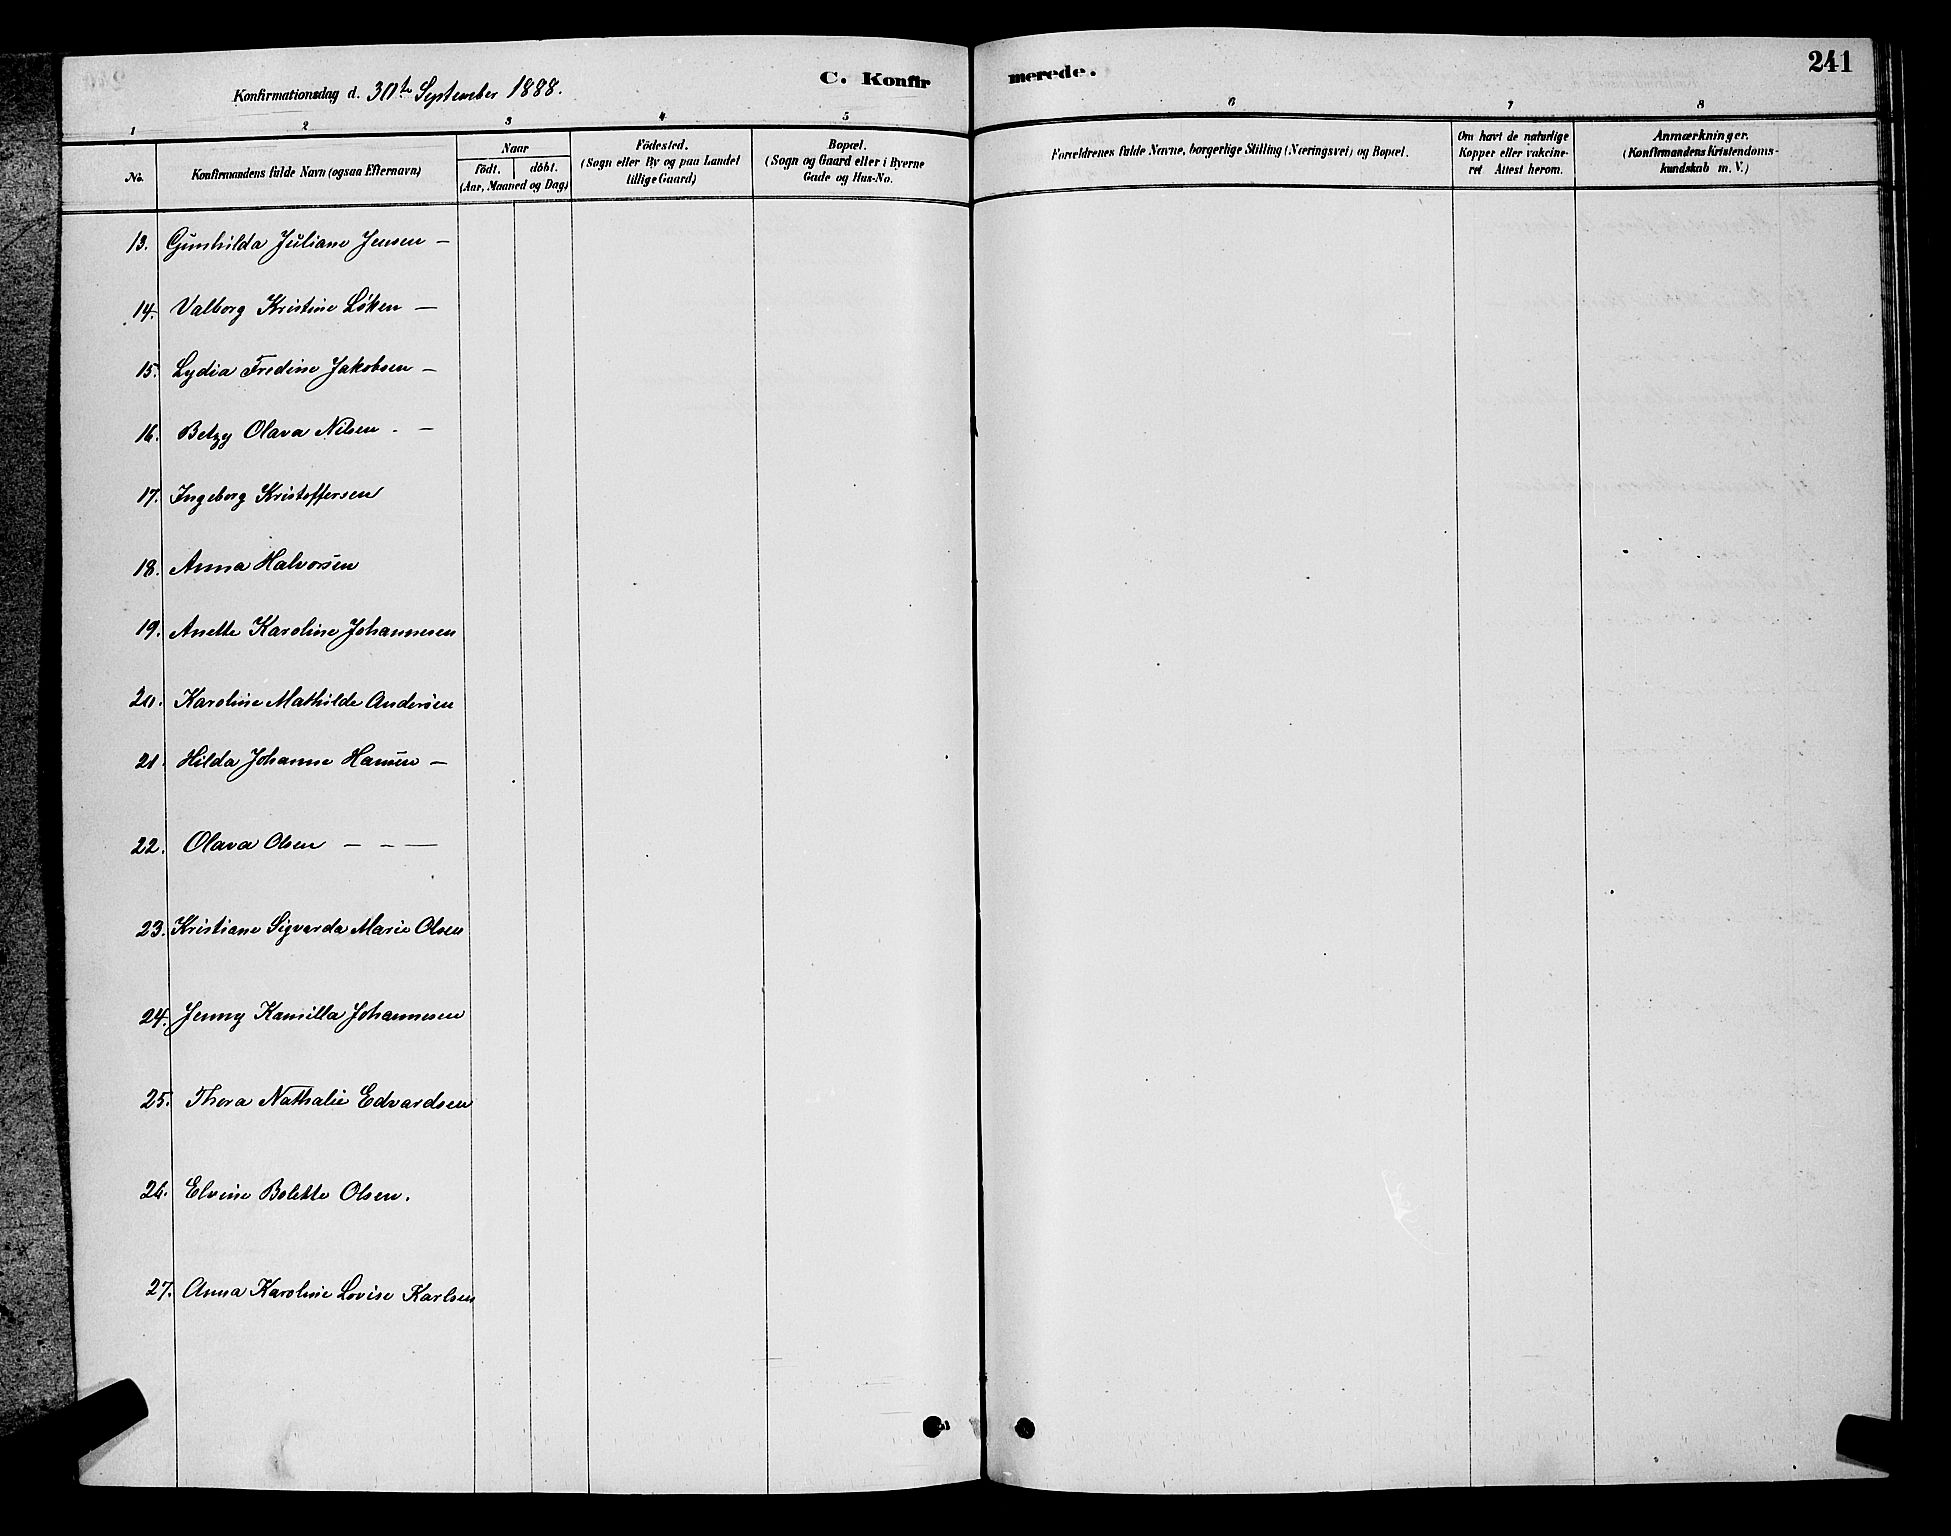 241
C. Konfirmerede.
Konfirmationsdag d. 30te September 1888.
1 2 3 4 5 6 7 8
No.
Konfirmandens fulde Navn (ogsaa Efternavn)
Naar
födt. döbt.
(Aar, Maaned og Dag)
Födested.
(Sogn eller By og paa Landet
tillige Gaard)
Bopæl.
(Sogn og Gaard eller i Byerne
Gade og Hus-No.
Forældrenes fulde Navne, borgerlige Stilling (Næringsvei) og Bopæl.
Om havt de naturlige
Kopper eller vakcine-
ret Attest herom.
Anmærkninger.
(Konfirmandens Kristendoms-
kundskab m. V.)
13. Gunhilda Juliane Jensen –
14. Valborg Kristine Löken –
15. Lydia Fredine Jakobsen –
16. Betzy Olava Nilsen. –
17. Ingeborg Kristoffersen
18. Anna Halvorsen
19. Anette Karoline Johannesen
20. Karoline Mathilde Andersen
21. Hilda Johanne Hansen –
22. Olava Olsen – – –
23. Kristiane Sigvarda Marie Olsen
24. Jenny Kamilla Johannesen
25. Thora Nathalie Edvardsen
26. Elvine Bolette Olsen.
27. Anna Karoline Lovise Karlsen